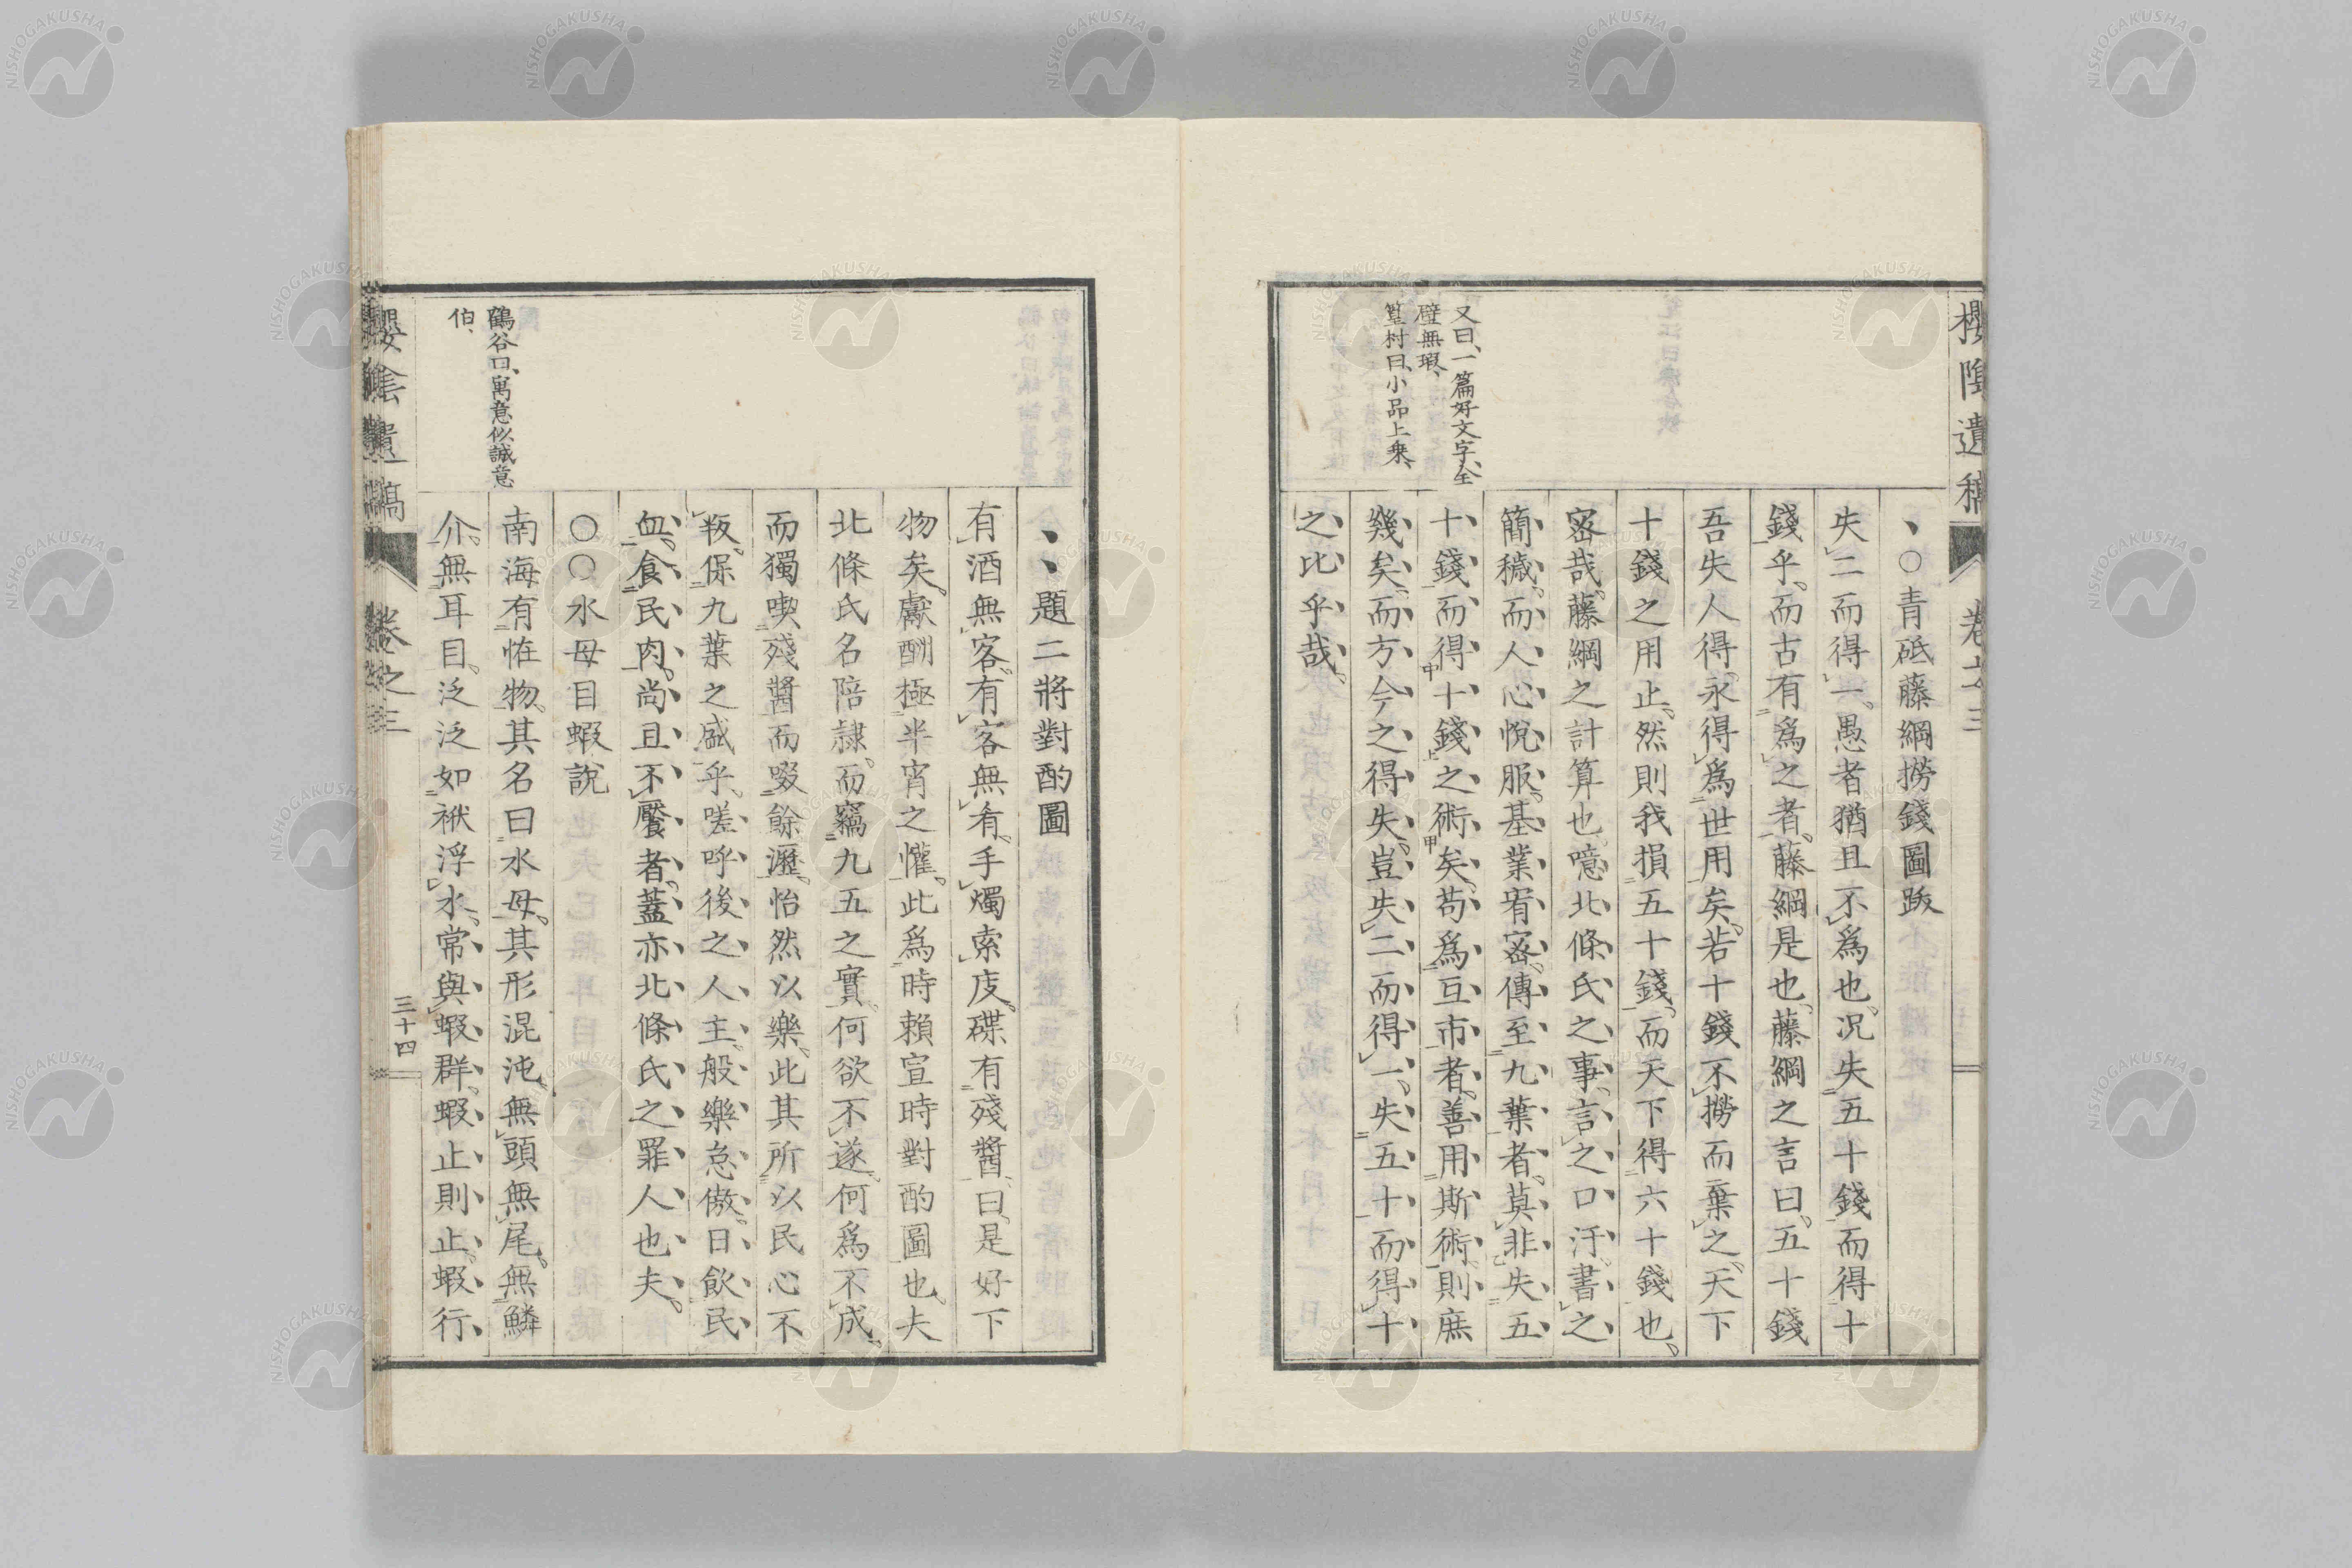 櫻陰遺稿
卷之三
又曰、一篇好文字、全
璧無瑕、
篁村曰、小品上乗、
、○靑砥藤綱撈錢圖跋
失二而得一。愚者猶且不爲也。况失五十錢而得十
錢乎。而古有爲之者。藤綱是也。藤綱之言曰。五十錢
吾失人得。永得爲世用矣。若十錢不撈而棄之、天下
十錢之用止。然則我損五十錢。而天下得六十錢也、
宻哉。藤綱之計算也。噫北條氏之事。言之口汙。書之
簡穢。而人心悅服。基業宥宻。傳至九葉者。莫非失五
十錢而得十錢之術矣。苟爲互市者。善用斯術。則庶
幾矣。而方今之得失。豈失二而得一。失五十而得十
之比乎哉。
、、題二將對酌圖
有酒無客。有客無有。手燭索庋。碟有殘醬。曰。是好下
物矣。獻酬極半宵之懽。此爲時賴宣時對酌圖也。夫
北條氏名陪隷。而竊九五之實。何欲不遂。何爲不成。
而獨喫殘醬而啜餘瀝。怡然以樂。此其所以民心不
叛。保九葉之盛乎。嗟呼後之人主。般樂怠傲。日飮民
血。食民肉。尚且不饜者。蓋亦北條氏之罪人也夫。
○○水母目蝦說
鶴谷曰、寓意似誠意
伯、
南海有恠物。其名曰水母。其形混沌。無頭無尾。無鱗
介。無耳目。泛泛如袱浮水。常與蝦群。蝦止則止。蝦行
櫻陰遺稿
卷之三
三十四